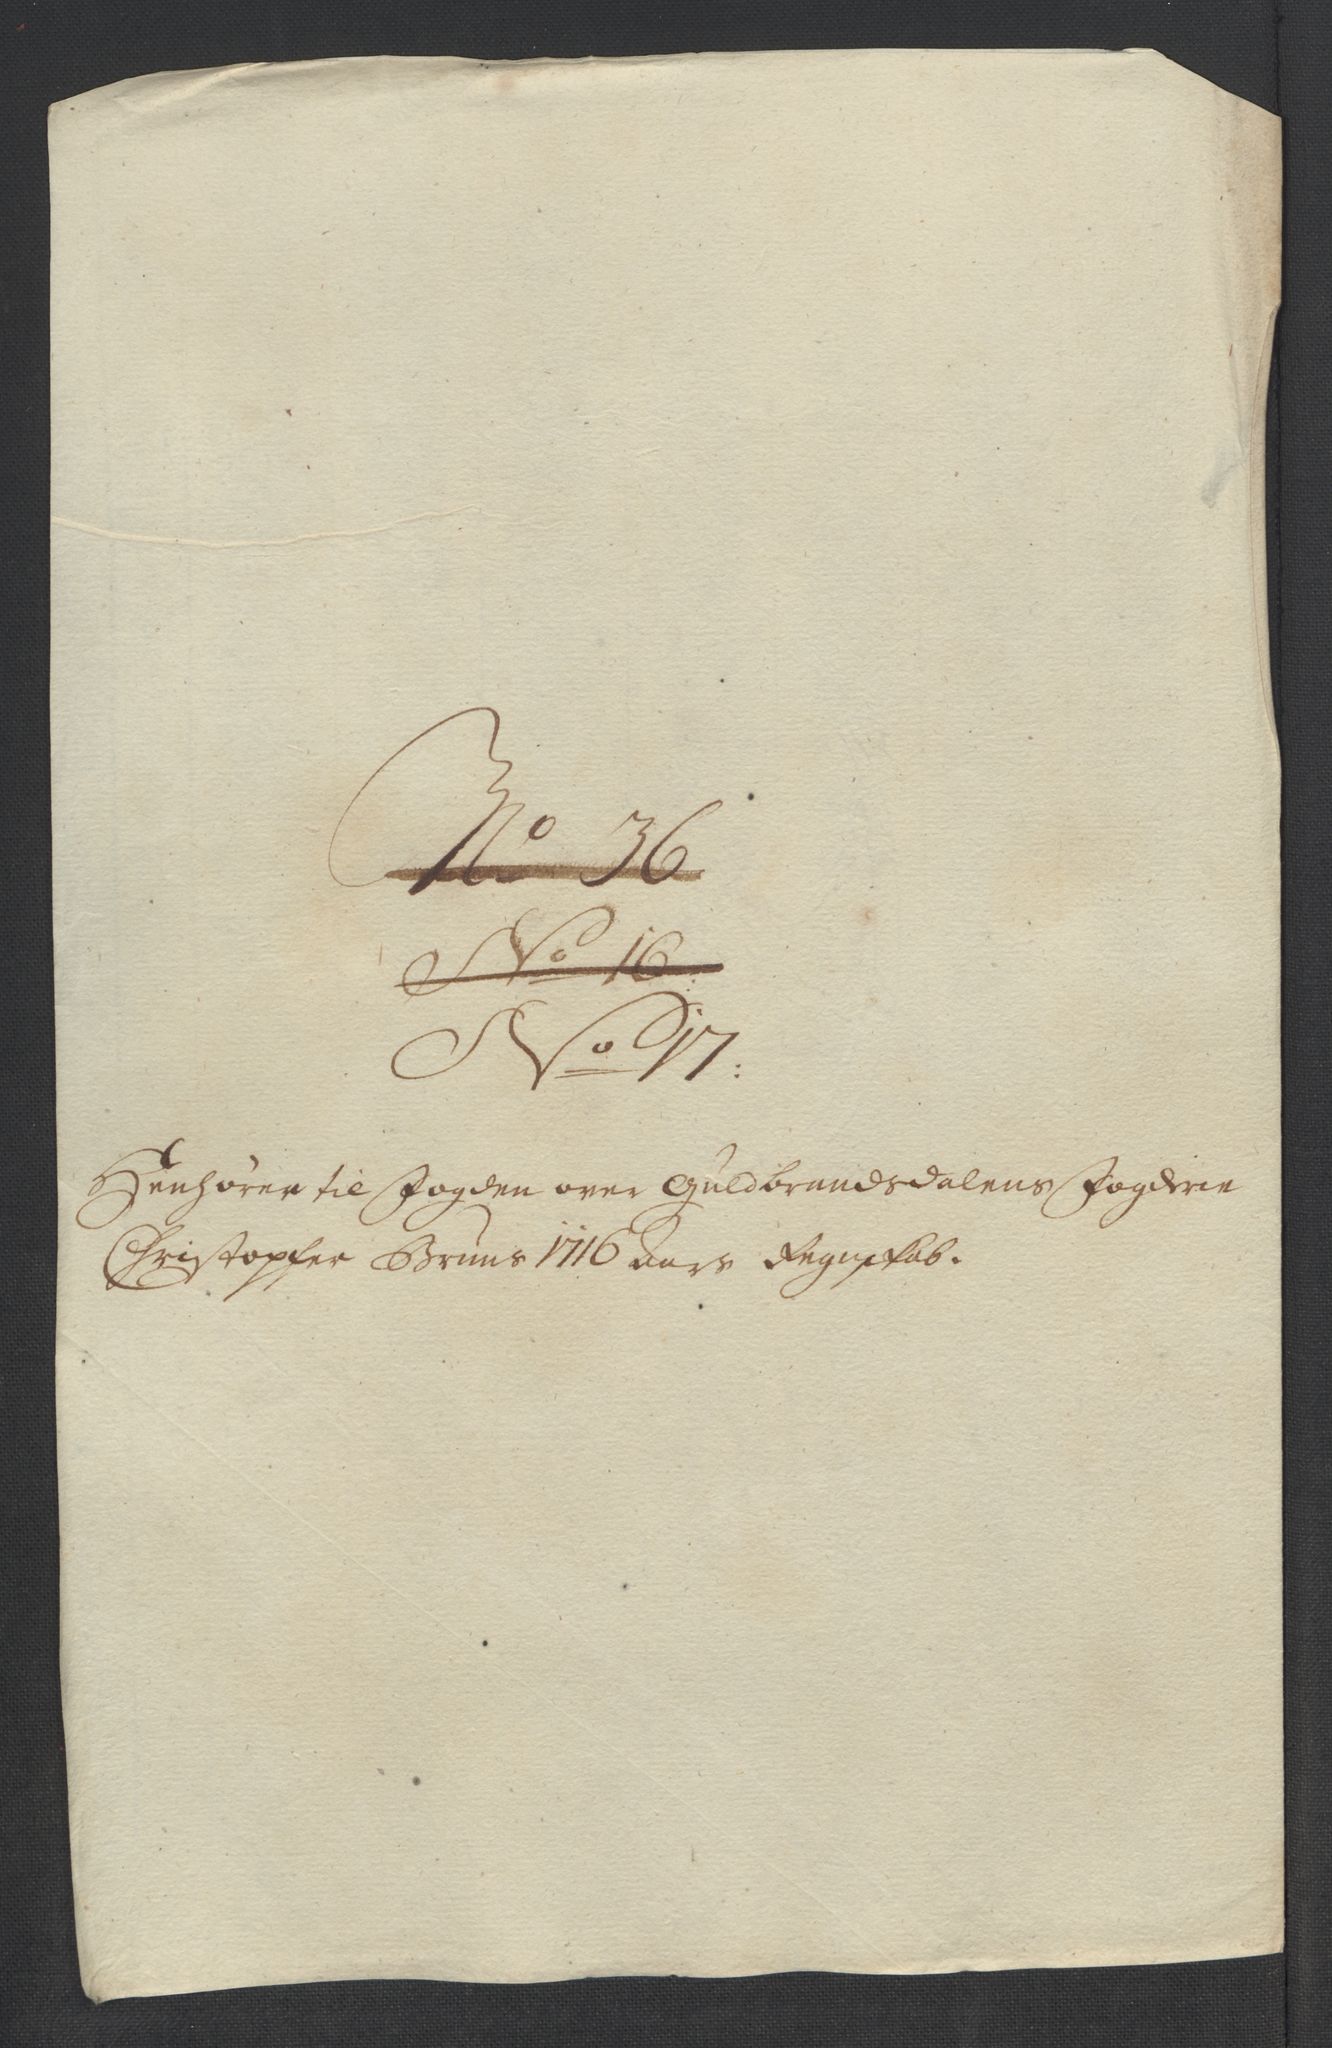 No 36
No 16
No 17:
Henhører til Fogden over Guldbrandsdalens Fogderie
Christopher Bruuns 1716 Aars Regnskab.